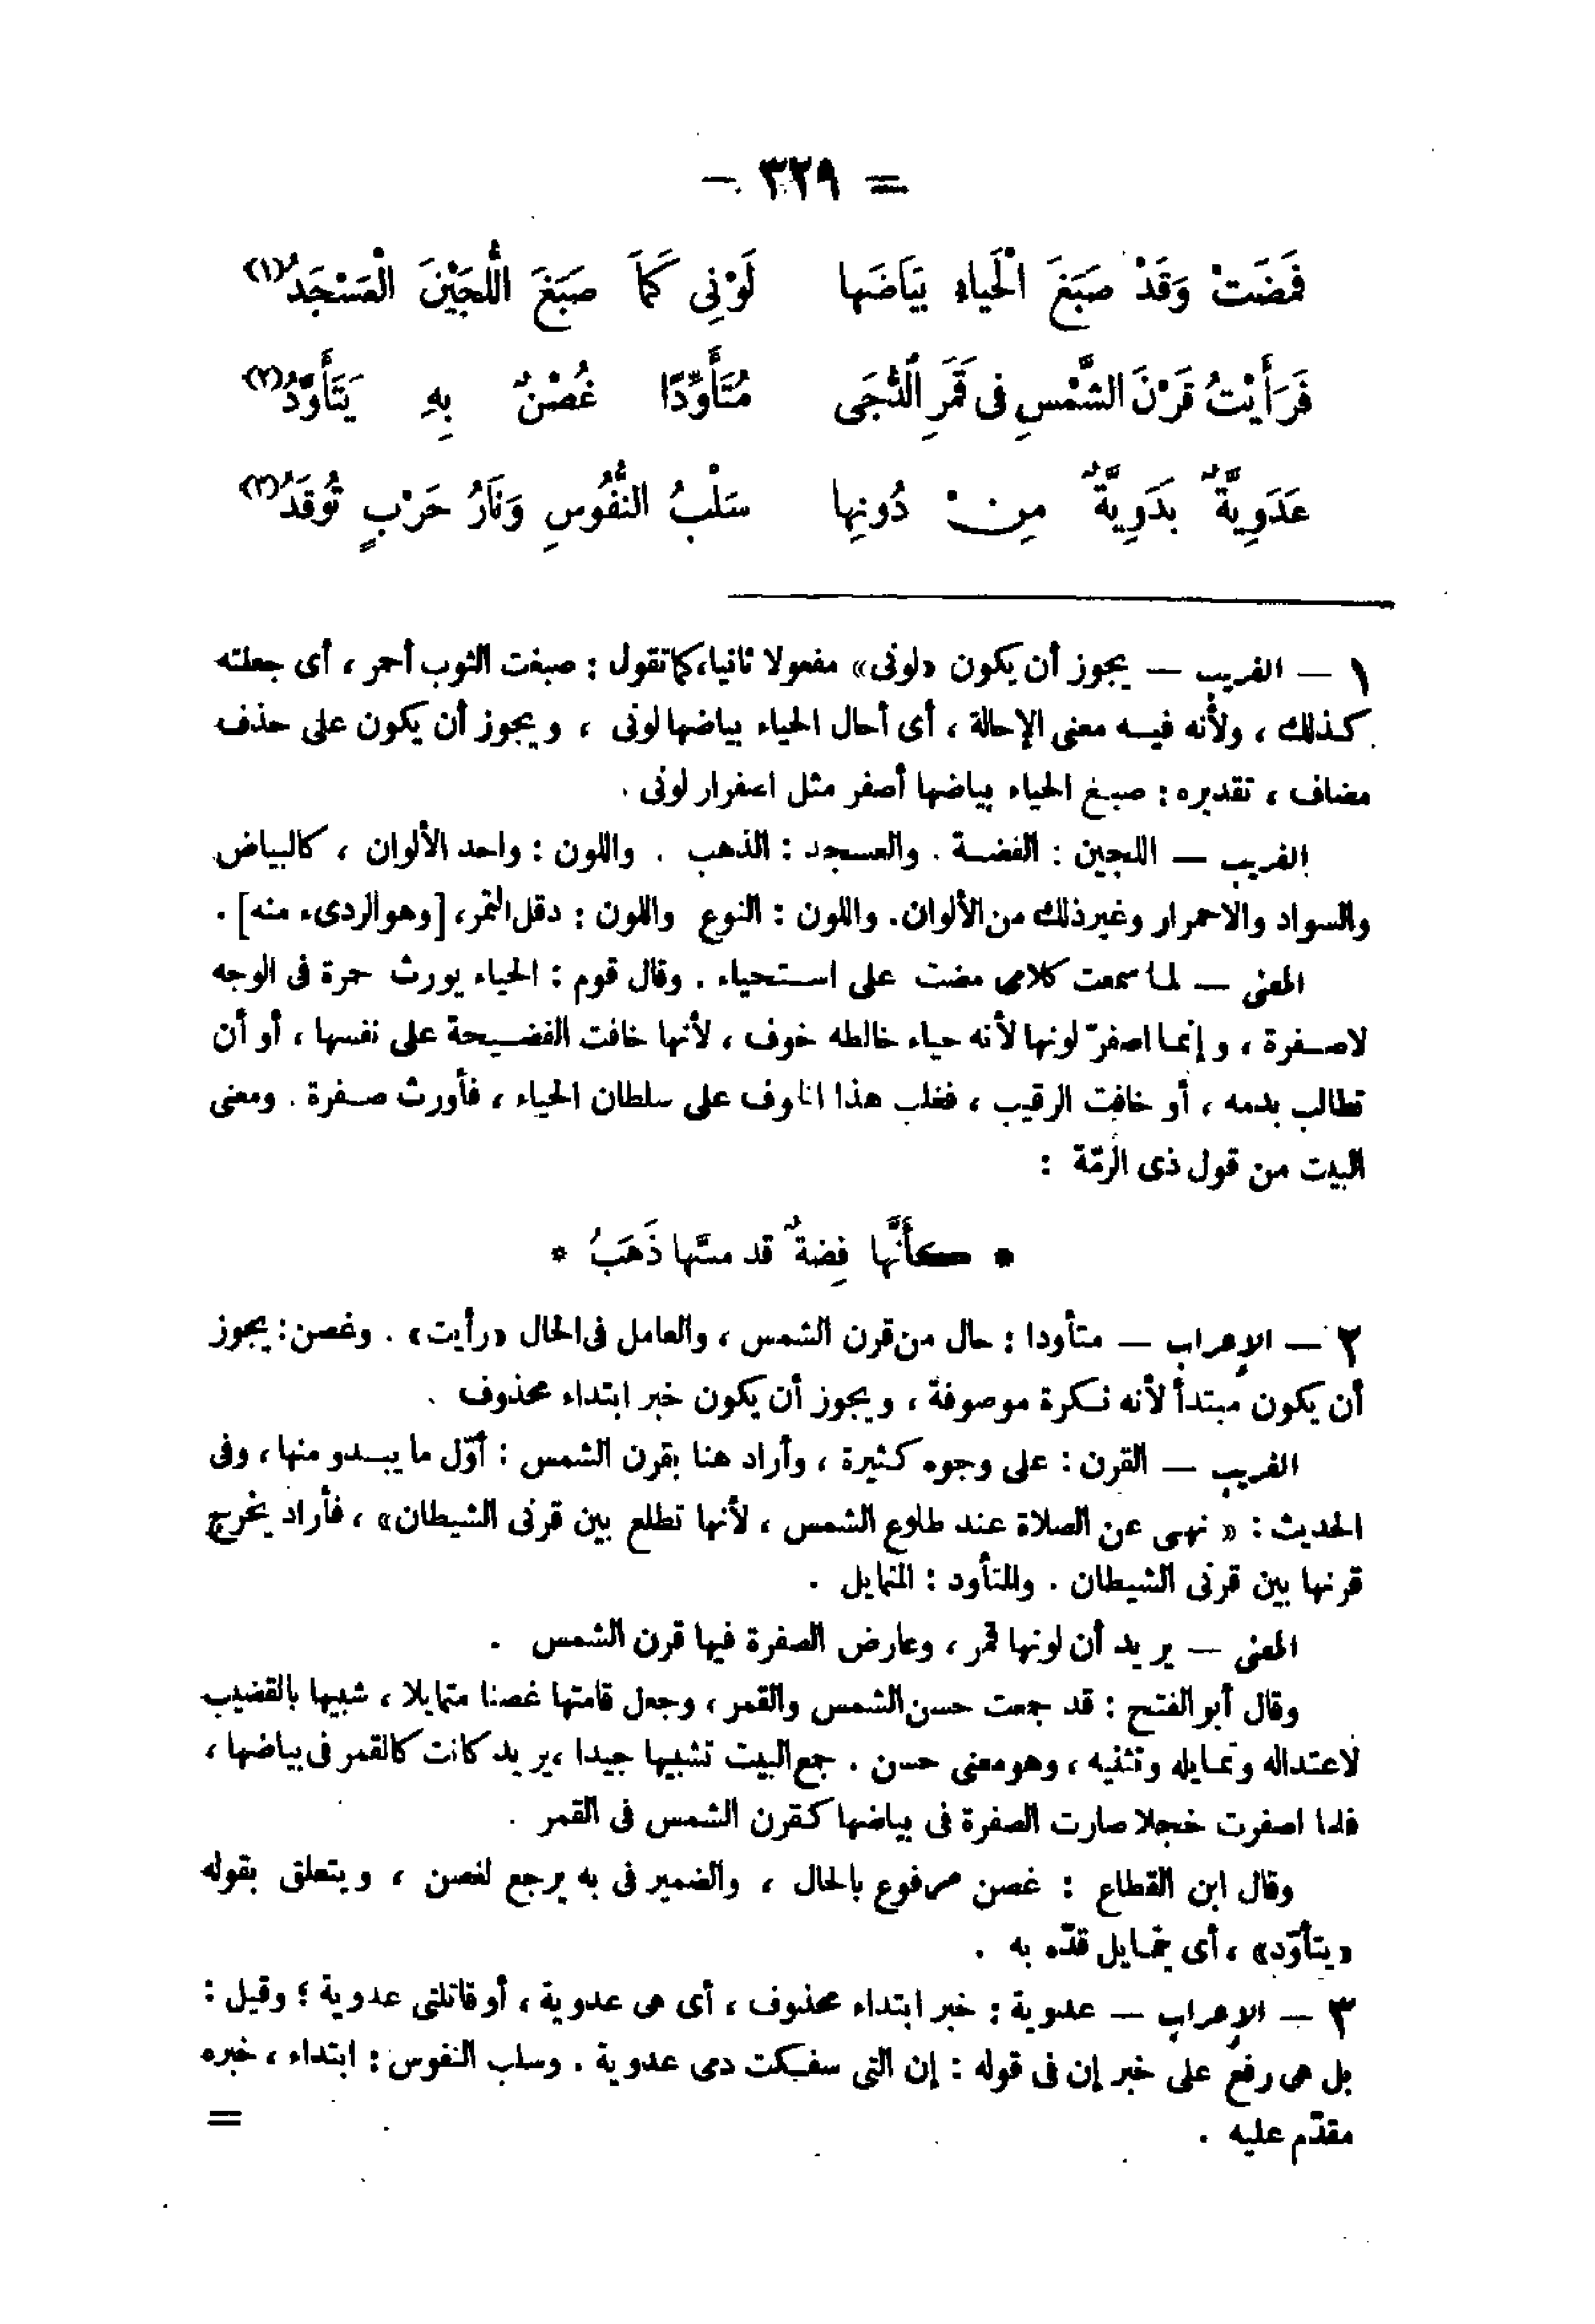 = ٣٢٩ -
فَمَضَتْ وَقَدْ صَبَغَ الْحَياءِ بَيَاضَها لَوْنِى كَمَا صَبَغَ اللُّجَيْنَ الْعَسْجَدُ(١)
فَرَأَيْتُ قَرْنَ الشَّمْسِ فى قَمَرِ الدُّجَى مُتَأَوِّدًا غُصْنٌ بِهِ يَتَأَوَّدُ(٢)
عَدَوِيَّةٌ بَدَوِيَّةٌ مِنْ دُونِها سَلْبُ النُّفُوسِ وَنَارُ حَرْبٍ تُوقَدُ(٣)
١ — الغريب — يجوز أن يكون «لونى» مفعولا ثانيا، كما تقول : صبغت الثوب أحمر ، أى جعلته
كذلك ، ولأنه فيه معنى الإحالة ، أى أحال الحياء بياضها لونى ، ويجوز أن يكون على حذف
مضاف ، تقديره : صبغ الحياء بياضها أصفر مثل اصفرار لونى .
الغريب — اللجين : الفضة . والعسجد : الذهب . واللون : واحد الألوان ، كالبياض
والسواد والاحمرار وغير ذلك من الألوان. واللون : النوع واللون : دقل التمر، [وهو الردىء منه] .
المعنى — لما سمعت كلامى مضت على استحياء . وقال قوم : الحياء يورث حمرة فى الوجه
لا صفرة ، وإنما اصفرّ لونها لأنه حياء خالطه خوف ، لأنها خافت الفضيحة على نفسها ، أو أن
تطالب بدمه ، أو خافت الرقيب ، فغلب هذا الخوف على سلطان الحياء ، فأورث صفرة . ومعنى
البيت من قول ذى الرمّة :
* كأَنَّها فِضةٌ قد مسَّها ذَهَبُ *
٢ — الإعراب — متأودا : حال من قرن الشمس ، والعامل فى الحال «رأيت» . وغصن: يجوز
أن يكون مبتدأ لأنه نكرة موصوفة ، ويجوز أن يكون خبر ابتداء محذوف .
الغريب — القرن : على وجوه كثيرة ، وأراد هنا بقرن الشمس : أوّل ما يبدو منها ، وفى
الحديث : « نهى عن الصلاة عند طلوع الشمس ، لأنها تطلع بين قرنى الشيطان» ، فأراد يخرج
قرنها بين قرنى الشيطان . والمتأود : المتمايل .
المعنى — يريد أن لونها قمر ، وعارض الصفرة فيها قرن الشمس .
وقال أبو الفتح : قد جمعت حسن الشمس والقمر ، وجعل قامتها غصنا متمايلا ، شبهها بالقضيب
لاعتداله وتمايله وتثنيه ، وهو معنى حسن . جمع البيت تشبيها جيدا ، يريد كانت كالقمر فى بياضها ،
فلما اصفرت خجلا صارت الصفرة فى بياضها كقرن الشمس فى القمر .
وقال ابن القطاع : غصن مرفوع بالحال ، والضمير فى به يرجع لغصن ، ويتعلق بقوله
«يتأوّد» ، أى يتمايل قدّه به .
٣ — الإعراب — عدوية : خبر ابتداء محذوف ، أى هى عدوية ، أو قاتلتى عدوية ؛ وقيل :
بل هى رفع على خبر إن فى قوله : إن التى سفكت دمى عدوية . وسلب النفوس : ابتداء ، خبره
مقدّم عليه .
=